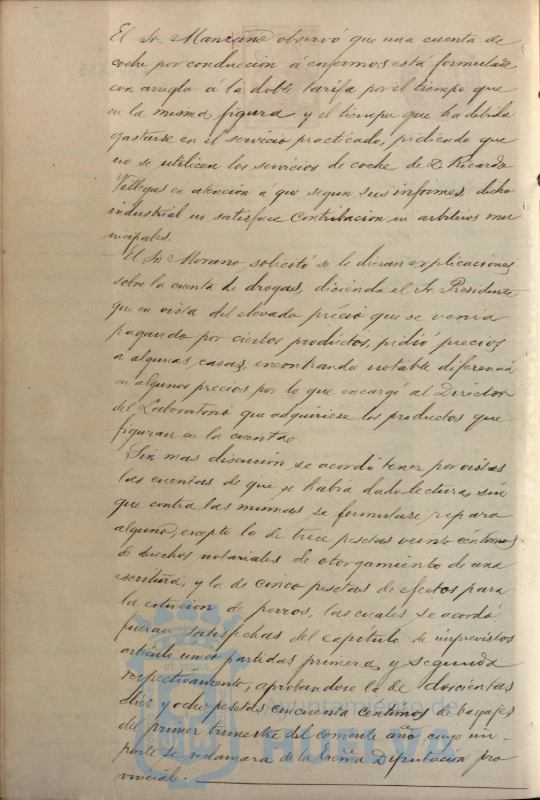 El Sr. Manzano observó que una cuenta de
coche por conduccion á enfermos está formulada
con arreglo á la doble tarifa por el tiempo que
en la misma figura y el tiempo que ha debido
gastarse en el servicio practicado, pidiendo que
no se utilicen los servicios de coche de D. Ricardo
Villegas en atención á que segun sus informes dicho
industrial no satisface Contribucion ni arbitrios mu
nicipales.
El Sr. Morano solicitó se le dieran explicaciones
sobre la cuenta de drogas, diciendo el Sr. Presidente
que en vista del elevado précio que se venia
pagando por ciertos productos, pidió precios
a algunas casas, encontrando notable diferencia
en algunos precios por lo que encargó al Director
del Laboratorio que adquiriese los productos que
figuran en la cuenta
Sin mas discusión se acordó tener por vistas
las cuentas de que se habia dado lectura, sin
que contra las mismas se formulase reparo
alguno, excepto la de trece pesetas veinte céntimos
de derechos notariales de otorgamiento de una
escritura, y la de cinco pesetas de efectos para
la extincion de perros, las cuales se acordó
fueran satisfechas del capitulo de imprevistos
articulo unico partidas primera y segunda
respectivamente, aprobandose la de doscientas
diez y ocho pesetas cincuenta centimos de bagajes
del primer trimestre del corriente año cuyo im-
porte se reclamara de la Excma Diputacion pro
vincial.
Ayuntamiento de
HUELVA